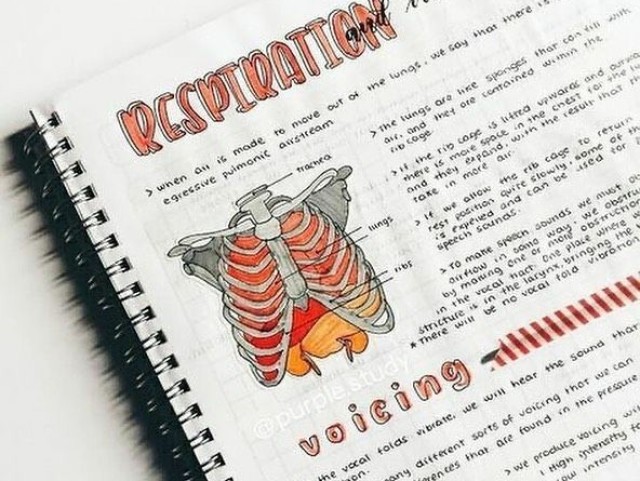 RESPIRATION and
> when air is made to move out of the lungs, we say that there is
egressive pulmonic airstream
trachea
lungs
ribs
> the lungs are like sponges that can fill with
air, and they are contained within the
rib cage.
> If the rib cage is lifted upwards and outwa
there is more space in the chest for the lu
and they expand, with the result that
take in more air.
> If we allow the rib cage to return
rest position quite slowly, some of
is expelled and can be used for
speech sounds.
> To make speech sounds we must
airflow in some way. we obst
by making one or more obstruct
in the vocal tract. one place where
stricture is in the larynx, bringing the
* there will be no vocal fold vibration
@purple.study
voicing
the vocal folds vibrate, we will hear the sound tha
many different sorts of voicing that we can
ferences that are found in the pressure
> we produce voicing w
high intensity
low intensity